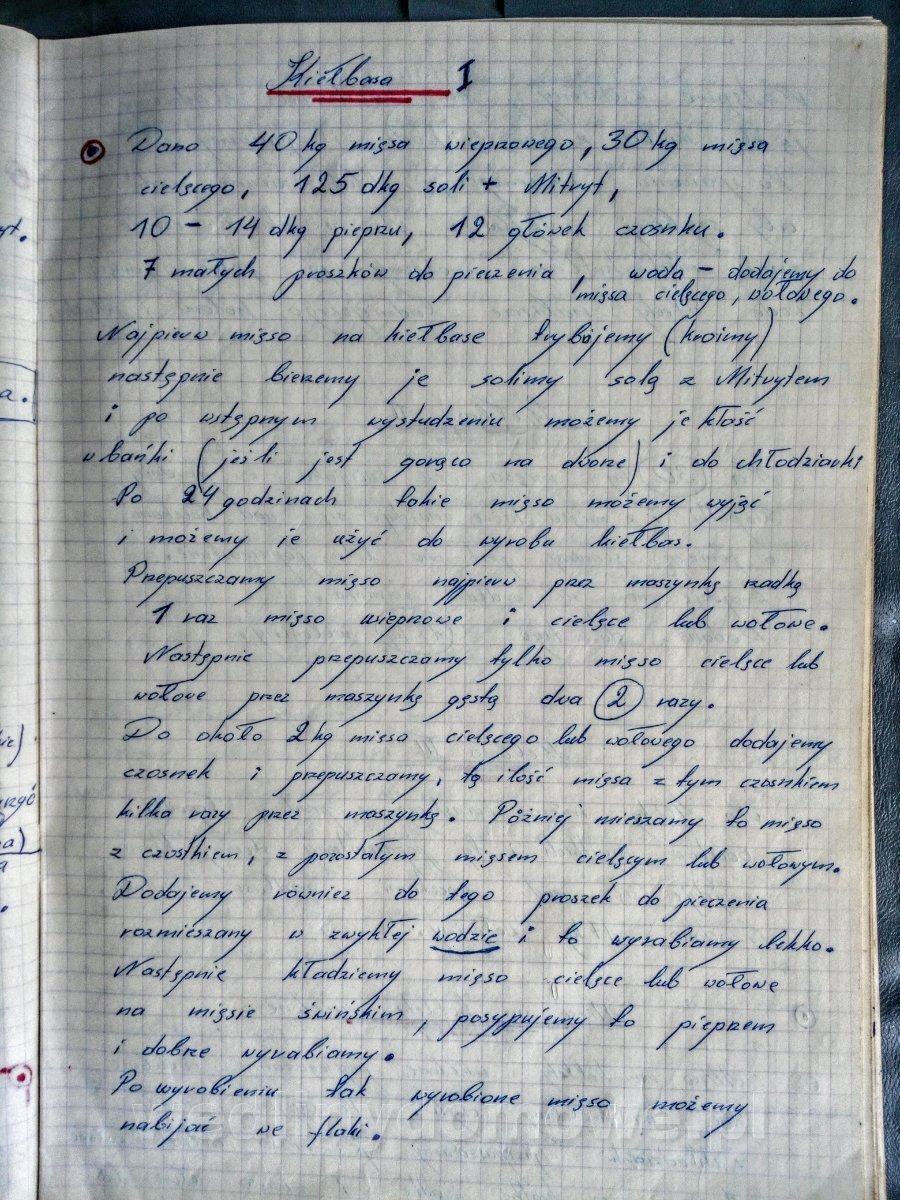 Kiełbasa I
Dano 40 kg mięsa wieprzowego, 30 kg mięsa
cielęcego, 125 dkg soli + Nitryt,
10 - 14 dkg pieprzu, 12 główek czosnku.
7 małych proszków do pieczenia, woda - dodajemy do
mięsa cielęcego, wołowego.
Najpierw mięso na kiełbase trybujemy (kroimy)
następnie bierzemy je solimy solą z Nitrytem
i po wstępnym wystudzeniu możemy je kłość
w bańki (jeśli jest gorąco na dworze) i do chłodziarki
Po 24 godzinach takie mięso możemy wyjąć
i możemy je użyć do wyrobu kiełbas.
Przepuszczamy mięso najpierw prez maszynkę rzadką
1 raz mięso wieprzowe i cielęce lub wołowe.
Następnie przepuszczamy tylko mięso cielęce lub
wołowe przez maszynkę gęstą dwa 2 razy.
Do około 2 kg mięsa cielęcego lub wołowego dodajemy
czosnek i przepuszczamy, tą ilość mięsa z tym czosnkiem
kilka razy przez maszynkę. Później mieszamy to mięso
z czostkiem, z pozostałym mięsem cielęcym lub wołowym.
Dodajemy również do tego proszek do pieczenia
rozmieszany w zwykłej wodzie i to wyrabiamy lekko.
Następnie kładziemy mięso cielęce lub wołowe
na mięsie świńskim, posypujemy to pieprzem
i dobrze wyrabiamy.
Po wyrobieniu tak wyrobione mięso możemy
nabijać we flaki.